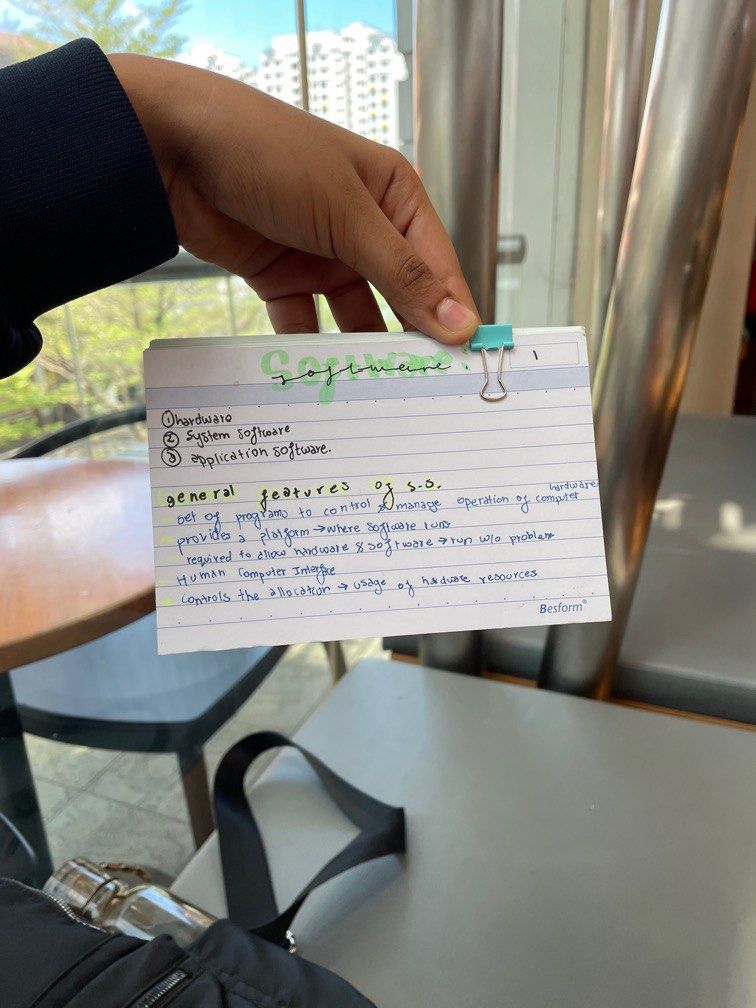 software
1
① hardware
② System software
③ application software.
general features of S.S.
set of programs to control & manage operation of computer hardware
provides a platform → where software runs
required to allow hardware & software → run w/o problem
Human Computer Interface
controls the allocation → usage of hardware resources
Besform®